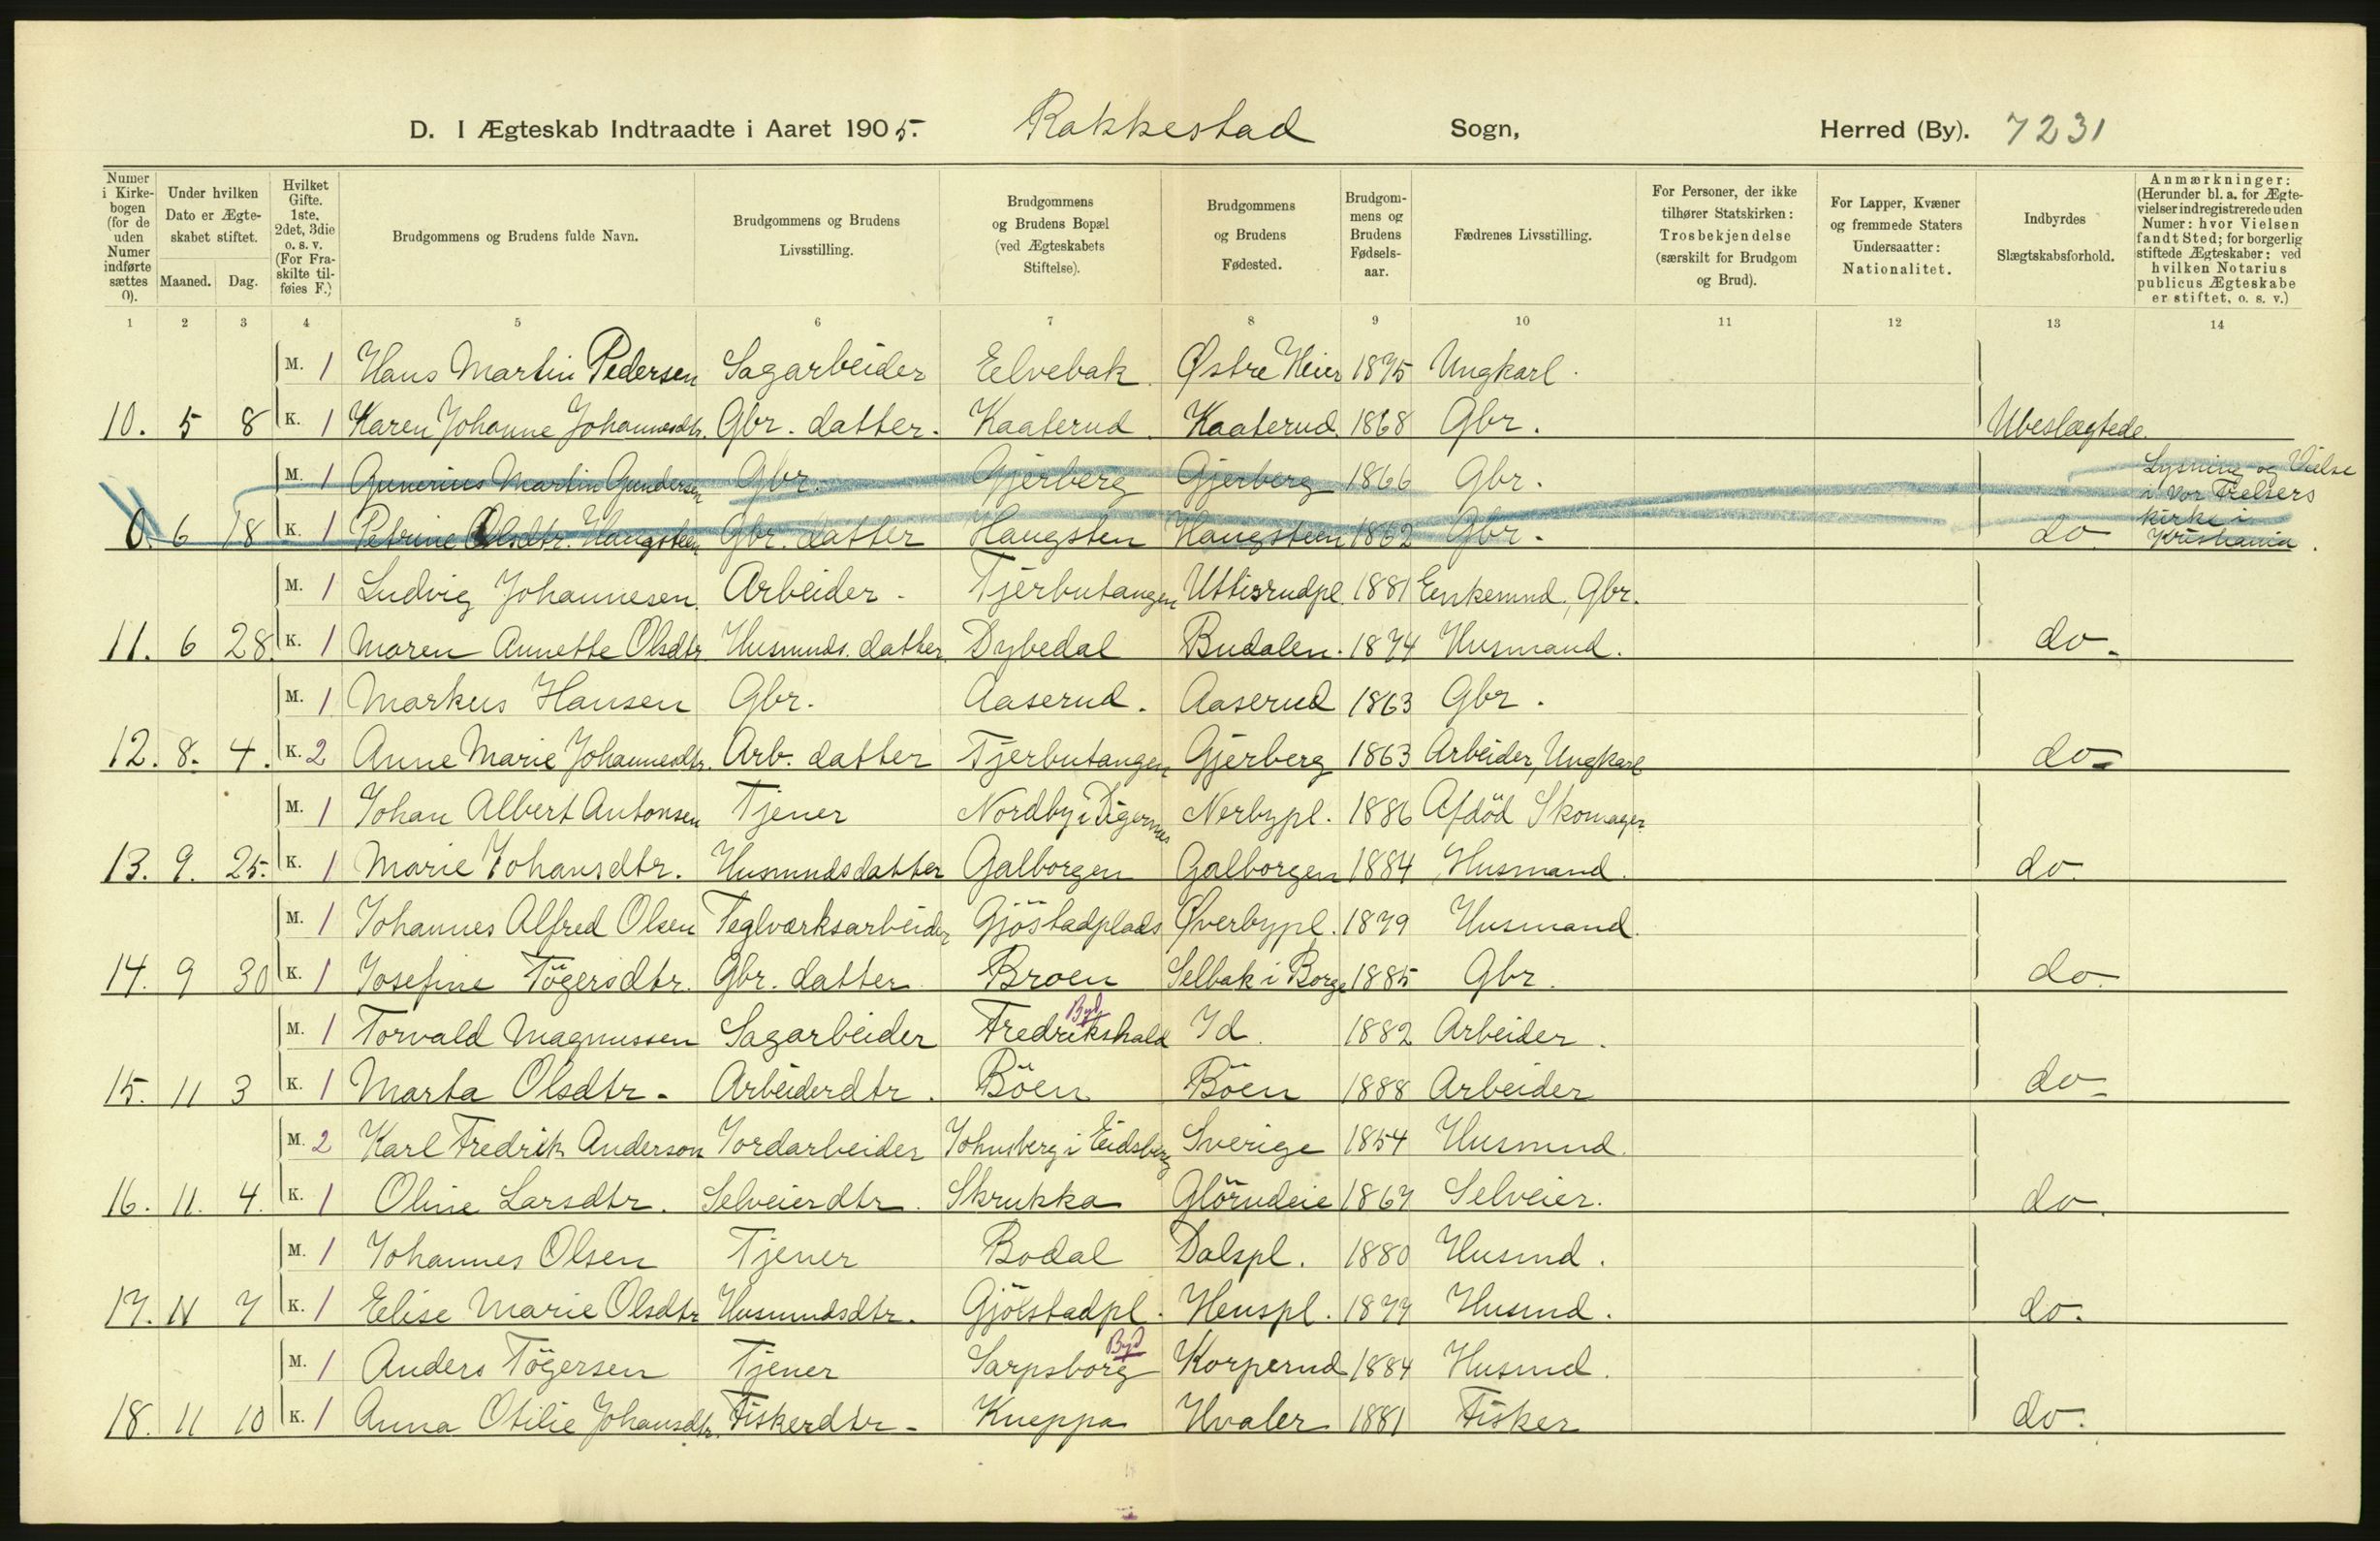 D. I Ægteskab Indtraadte i Aaret 1905. Rakkestad Sogn, Herred (By). 7231
Numer i Kirkebogen (for de uden Numer indførte sættes 0). Under hvilken Dato er Ægteskabet stiftet. Maaned. Dag. Hvilket Gifte. 1ste, 2det, 3die o. s. v. (For Fraskilte tilføies F.) Brudgommens og Brudens fulde Navn. Brudgommens og Brudens Livsstilling. Brudgommens og Brudens Bopæl (ved Ægteskabets Stiftelse). Brudgommens og Brudens Fødested. Brudgommens og Brudens Fødselsaar. Fædrenes Livsstilling. For Personer, der ikke tilhører Statskirken: Trosbekjendelse (særskilt for Brudgom og Brud). For Lapper, Kvæner og fremmede Staters Undersaatter: Nationalitet. Indbyrdes Slægtskabsforhold. Anmærkninger: (Herunder bl. a. for Ægtevielser indregistrerede uden Numer: hvor Vielsen fandt Sted; for borgerlig stiftede Ægteskaber: ved hvilken Notarius publicus Ægteskabe er stiftet, o. s. v.)
1 2 3 4 5 6 7 8 9 10 11 12 13 14
M. 1 Hans Martin Pedersen Sagarbeider Eelvebak. Østre Heier 1875 Ungkarl.
10. 5 8 K. 1 Karen Johanne Johannesdtr. Gbr. datter. Kaaterud. Kaaterud. 1868 Gbr. Ubeslægtede.
M. 1 Gunerius Martin Gundersen Gbr. Gjerberg Gjerberg 1866 Gbr. Lysning og Vielse i Vor Frelsers
0. 6 18 K. 1 Petrine Olsdtr. Haugsteen Gbr. datter Haugsten Haugsteen 1862 Gbr. do kirke i Kristiania.
M. 1 Ludvig Johannesen. Arbeider - Tjerbutangen Uttisrudpl. 1881 Enkemnd, Gbr.
11. 6 28. K. 1 Maren Annette Olsdtr. Husmnds. datter. Dybedal Budalen. 1874 Husmand. do.
M. 1 Markus Hansen Gbr. Aaserud. Aaserud 1863 Gbr.
12. 8. 4. K. 2 Anne Marie Johannesdtr. Arb. datter Tjerbutangen Gjerberg 1863 Arbeider, Ungkarl do
M. 1 Johan Albert Antonsen Tjener Nordby i Digernes Nerbypl. 1886 Afdöd Skomager
13. 9. 25. K. 1 Marie Johansdtr. Husmndsdatter Galborgen Galborgen 1884 Husmand. do
M. 1 Johannes Alfred Olsen Teglværksarbeider Gjöstadplads Øverbypl. 1879 Husmand.
14. 9 30 K. 1 Josefine Tögersdtr. Gbr. datter. Broen Selbak i Borge 1885 Gbr. do.
M. 1 Torvald Magnussen Sagarbeider Fredrikshald Byd Id. 1882 Arbeider.
15. 11 3 K. 1 Marta Olsdtr. Arbeiderdtr. Böen Böen 1888 Arbeider do
M. 2 Karl Fredrik Anderson Jordarbeider Johnsberg i Eidsberg Sverige 1854 Husmnd.
16. 11. 4. K. 1 Oline Larsdtr. Selveierdtr. Skrukka Glörudeie 1867 Selveier. do.
M. 1 Johannes Olsen Tjener Bodal Dalspl. 1880 Husmd.
17. 11 7 K. 1 Eelise Marie Olsdtr Husmndsdtr. Gjölstadpl. Henspl. 1877 Husmd. do.
M. 1 Anders Tögersen Tjener Sarpsborg Byd Korperud 1884 Husmd.
18. 11 10 K. 1 Anna Otilie Johansdtr. Fiskerdtr. Kneppa Hvaler 1881 Fisker do.